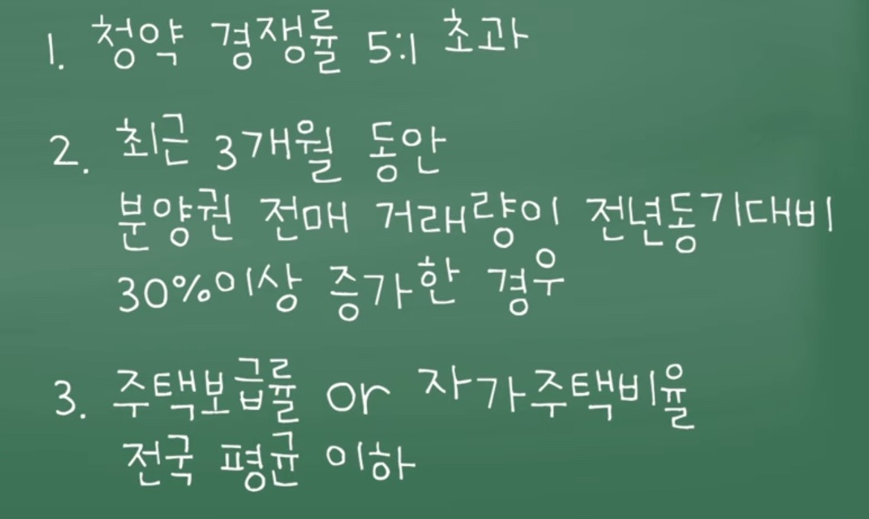 1. 청약 경쟁률 5:1 초과
2. 최근 3개월 동안
분양권 전매 거래량이 전년동기대비
30%이상 증가한 경우
3. 주택보급률 or 자가주택비율
전국 평균 이하